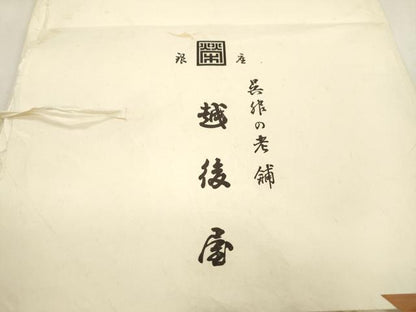 銀座
呉服の老舗
越後屋